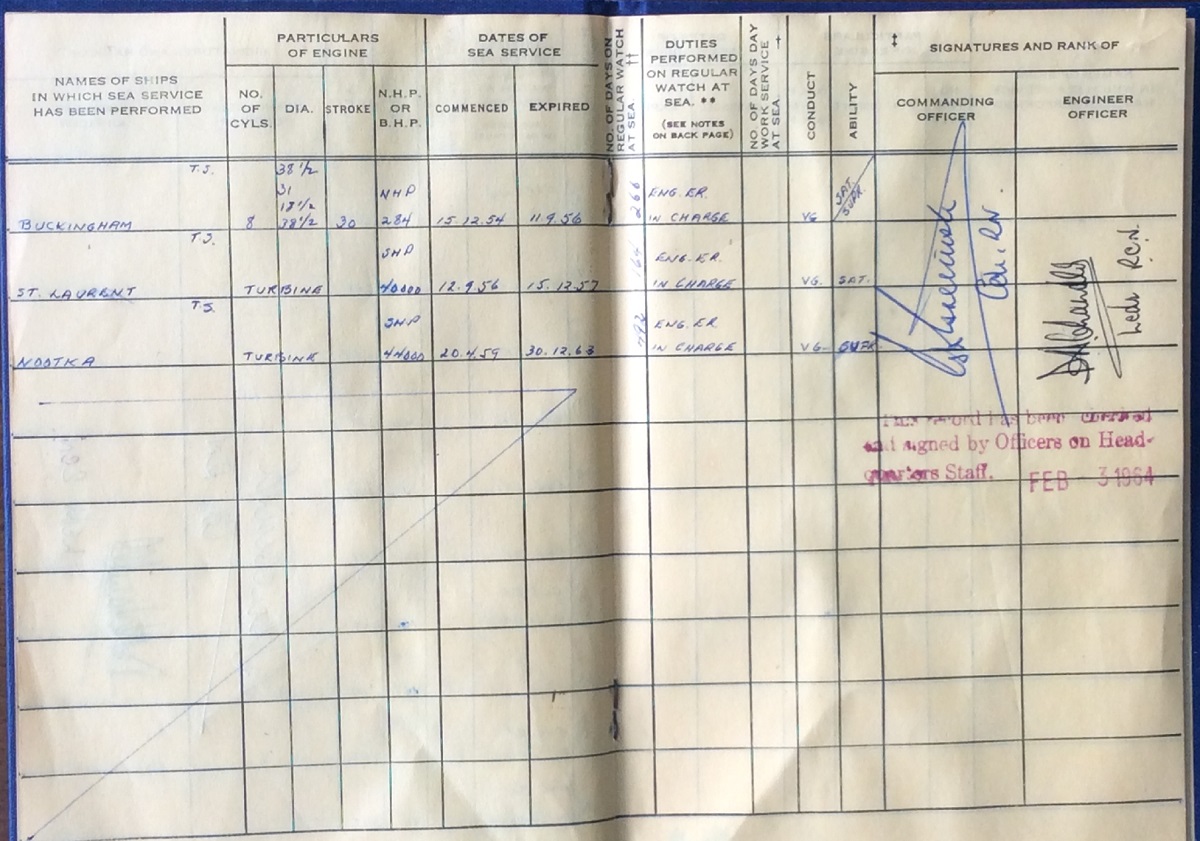 NAMES OF SHIPS
IN WHICH SEA SERVICE
HAS BEEN PERFORMED
PARTICULARS
OF ENGINE
NO.
OF
CYLS.
DIA.
STROKE
N.H.P.
OR
B.H.P.
DATES OF
SEA SERVICE
COMMENCED
EXPIRED
NO. OF DAYS ON
REGULAR WATCH
AT SEA. ††
DUTIES
PERFORMED
ON REGULAR
WATCH AT
SEA. **
(SEE NOTES
ON BACK PAGE)
NO. OF DAYS DAY
WORK SERVICE †
AT SEA
CONDUCT
ABILITY
‡ SIGNATURES AND RANK OF
COMMANDING
OFFICER
ENGINEER
OFFICER
T.S. 38½
31 NHP ENG. ER. SAT
18½ SUPR.
BUCKINGHAM 8 38½ 30 284 15.12.54 11.9.56 266 IN CHARGE VG
T.S. SHP ENG. ER.
ST. LAURENT TURBINE 40000 12.9.56 15.12.57 164 IN CHARGE VG. SAT.
T.S. SHP ENG. ER
NOOTKA TURBINE 44000 20.4.59 30.12.63 792 IN CHARGE VG. SUPR
Lcdr R.C.N.
This record has been checked
and signed by Officers on Head-
quarters Staff. FEB - 3 1964